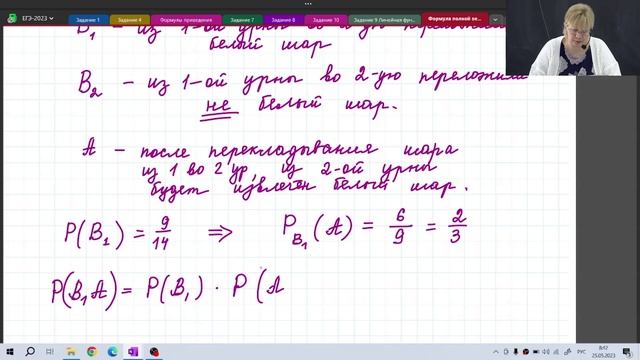 ЕГЭ-2023
Задание 1
Задание 4
Формулы приведения
Задание 7
Задание 8
Задание 10
Задание 9 Линейная фун...
Формула полной ве...
B₁ - из 1-ой урны во 2-ую
белый шар
B₂ - из 1-ой урны во 2-ую переложили
не белый шар.
A - после перекладывания шара
из 1 во 2 ур, из 2-ой урны
будет извлечен белый шар.
P(B₁) = 9/14 ⇒ P_B₁(A) = 6/9 = 2/3
P(B₁A) = P(B₁) · P(A
РУС
8:12
25.05.2023